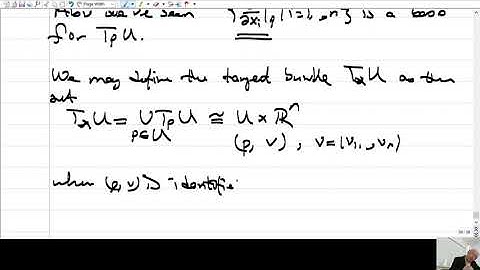 Also we've seen { ∂/∂x_i|_p | i=1,..,n } is a base
for T_p U.
We may define the tangent bundle T_* U as the
set
T_* U = ∪_{p∈U} T_p U ≅ U × ℝ^n
(p, v), v=(v_1,..,v_n)
when (p, v) is identifie